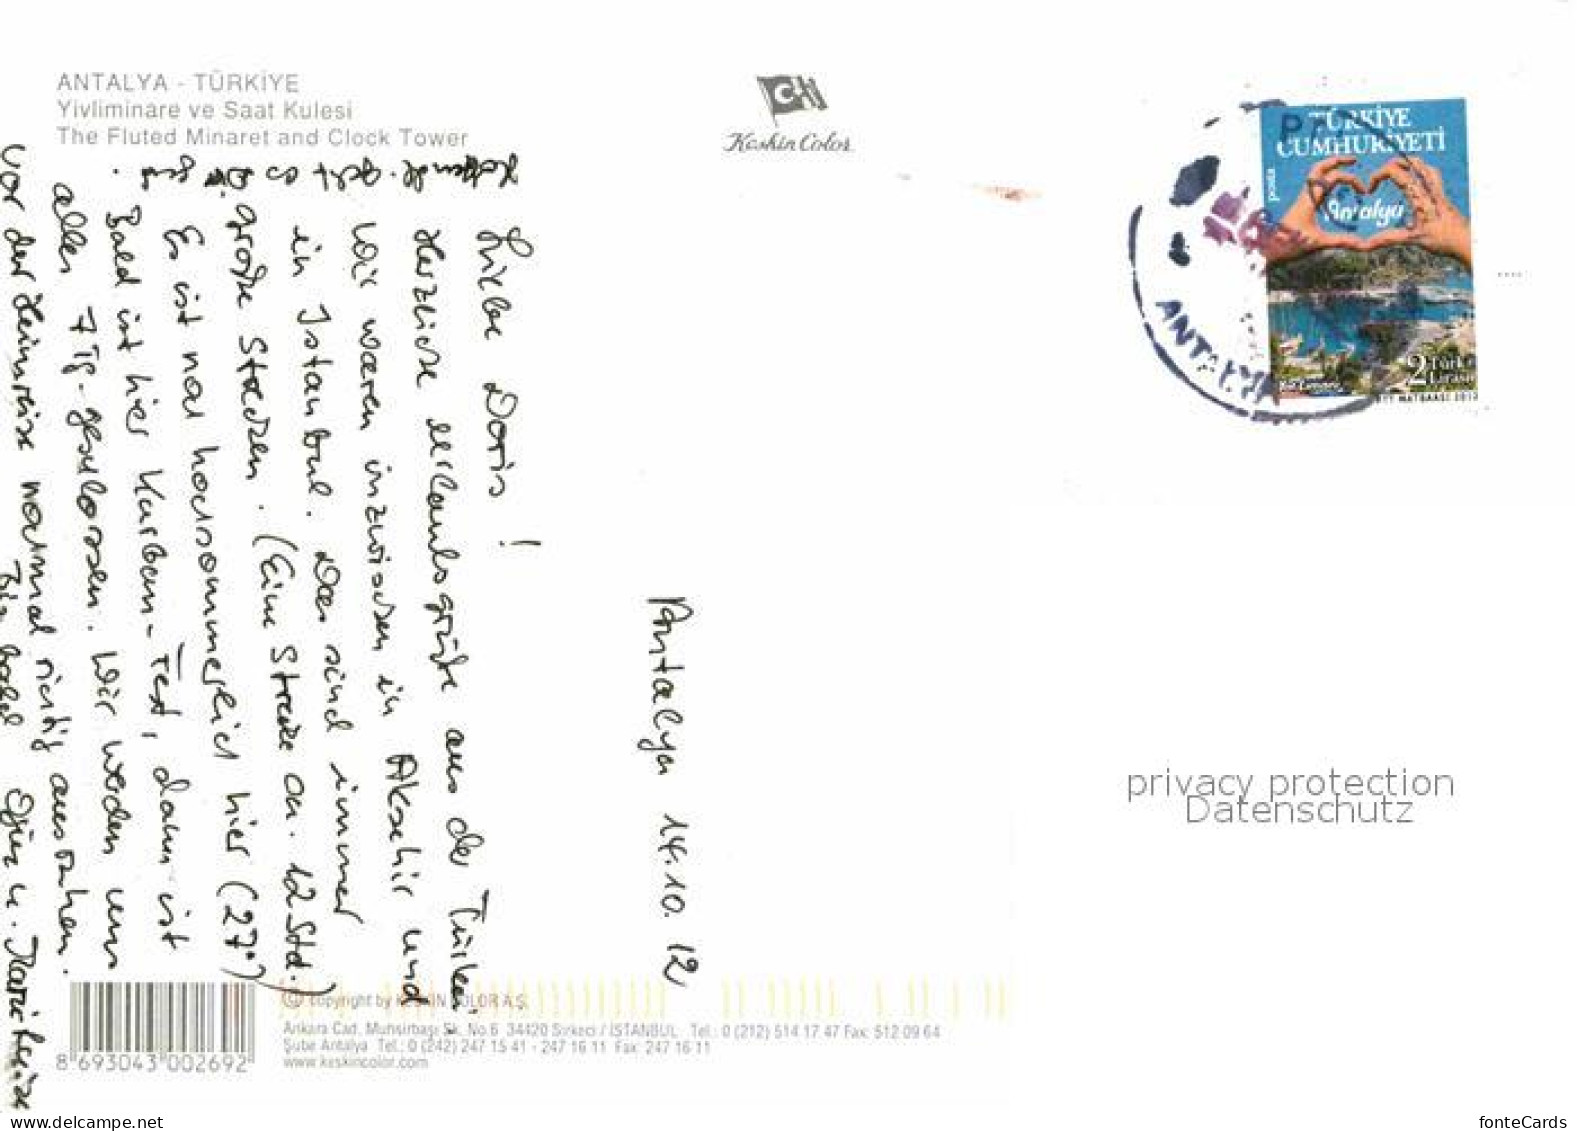 ANTALYA - TÜRKİYE
Yivliminare ve Saat Kulesi
The Fluted Minaret and Clock Tower
Keskin Color
TÜRKİYE
CUMHURİYETİ
posta
Antalya
2 Türk
Lirası
PTT MATBAASI 2012
ANTALYA
Antalya 14.10.12
Liebe Doris !
Herzliche Urlaubsgrüße aus der Türkei.
Wir waren inzwischen in Akşehir und
in Istanbul. Das sind immer
große Strecken. (Eine Strecke ca. 12 Std.)
Es ist noch hochsommerlich hier (27°)
Bald ist hier Kurban-Fest, dann ist
alles 7 Tg. geschlossen. Wir werden uns
vor der Heimreise nochmal richtig ausruhen.
Bis bald
privacy protection
Datenschutz
© copyright by KESKİN COLOR A.Ş.
Ankara Cad. Muhsirbaşı Sk. No.6 34420 Sirkeci / İSTANBUL Tel.: 0 (212) 514 17 47 Fax: 512 09 64
Şube Antalya Tel.: 0 (242) 247 15 41 - 247 16 11 Fax: 247 16 11
www.keskincolor.com
8 693043 002692
www.delcampe.net
fonteCards